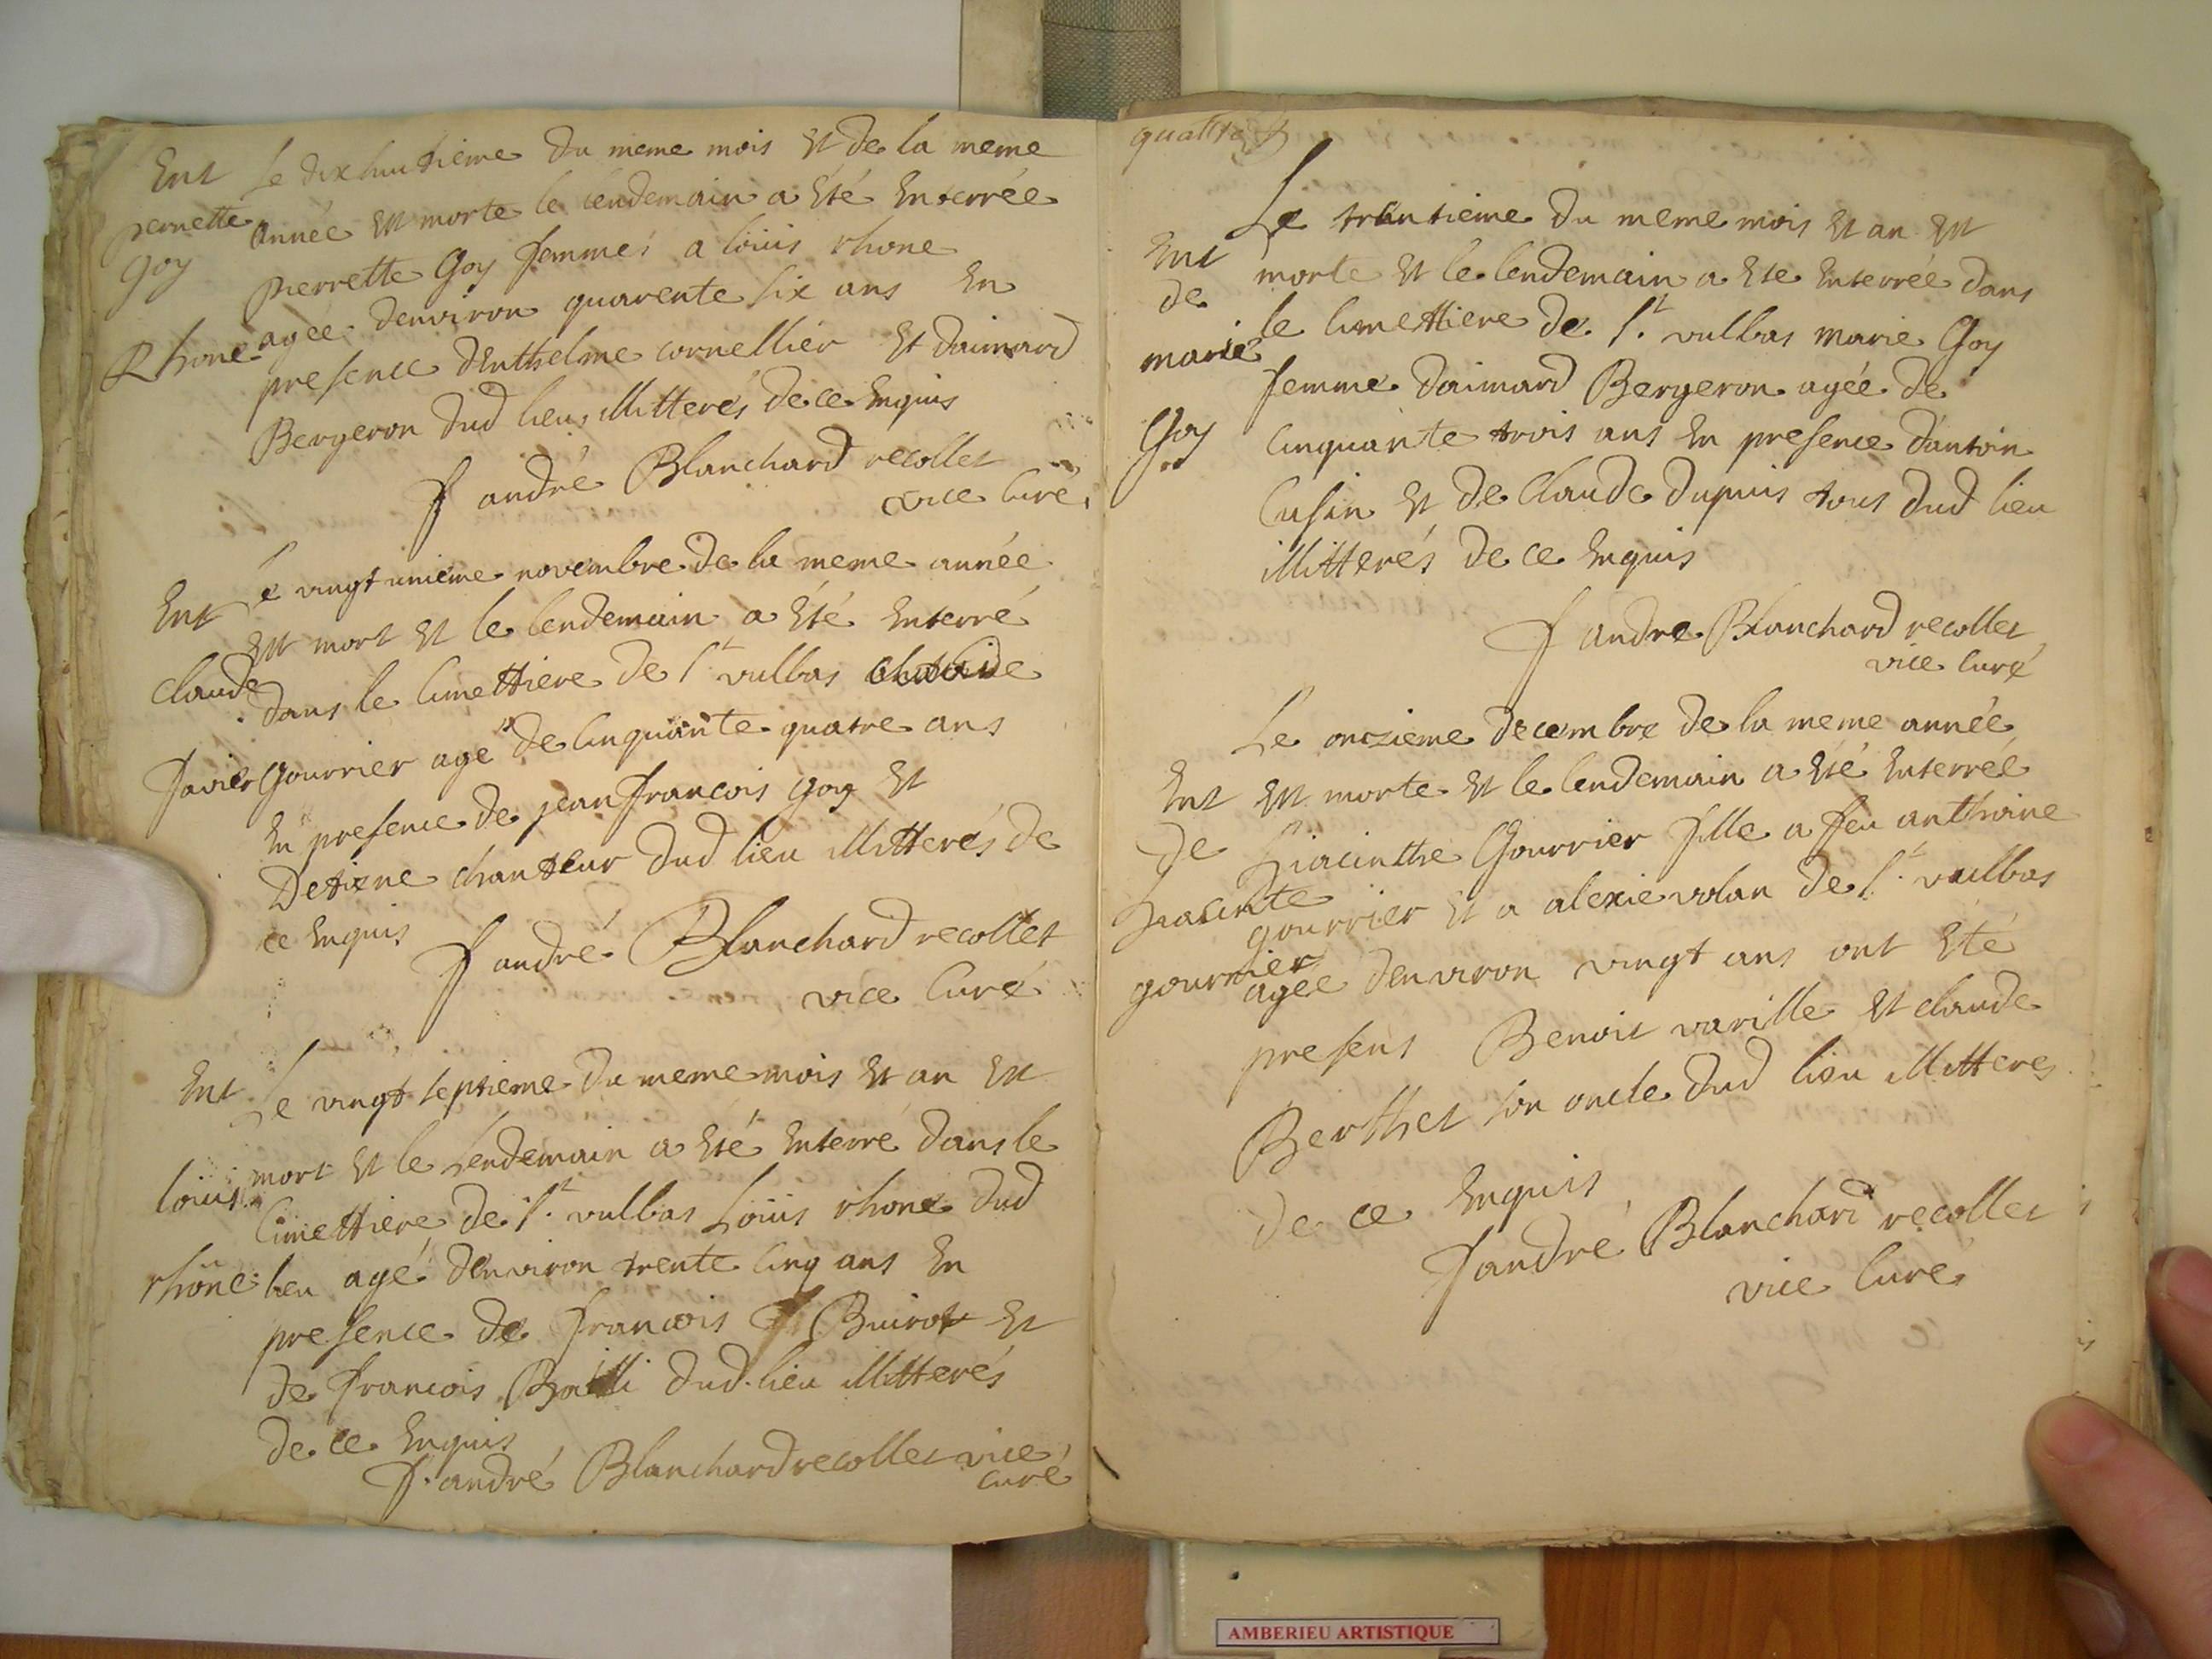 Ent
pernette
Goy
Rhone
Le dix huitieme du meme mois et de la meme
année est morte le lendemain a été enterrée
pierrette Goy femme a loüis rhone
agée denviron quarente six ans en
presence denthelme cornellier et daimard
Bergeron dud lieu illitterés de ce enquis
f andré Blanchard recollet
vice curé
Ent
claude
Le vingt unieme novembre de la meme année
est mort et le lendemain a été enterré
dans le cimettiere de st vulbas claude
Gourrier agé de cinquante quatre ans
en presence de jean francois goy et
detiene chanteur dud lieu illitterés de
ce enquis
f andré Blanchard recollet
vice curé
Ent
loüis
rhône
Le vingt septieme du meme mois et an est
mort et le lendemain a été enterré dans le
cimettiere de st vulbas Loüis rhone dud
lieu agé denviron trente cinq ans en
presence de francois Buirot et
de francois Bailli dud lieu illitterés
de ce enquis
f. andré Blanchard recollet vice
curé
quattre
Ent
de
marie
Goy
Le trentieme du meme mois et an est
morte et le lendemain a été enterrée dans
le cimettiere de st vulbas marie Goy
femme daimard Bergeron agée de
cinquante trois ans en presence dantoin
Cusin et de claude dupuis tous dud lieu
illitterés de ce enquis
f andre Blanchard recollet
vice curé
Ent
de
hiacinte
gourrier
Le onzieme decembre de la meme année
est morte et le lendemain a été enterrée
hiacinthe Gourrier fille a feu anthoine
gourrier et a alexie volan de st vulbas
agée denviron vingt ans ont été
presens Benoit varille et claude
Berthet son oncle dud lieu illitteres
de ce enquis
f andré Blanchard recollet
vice curé
AMBERIEU ARTISTIQUE